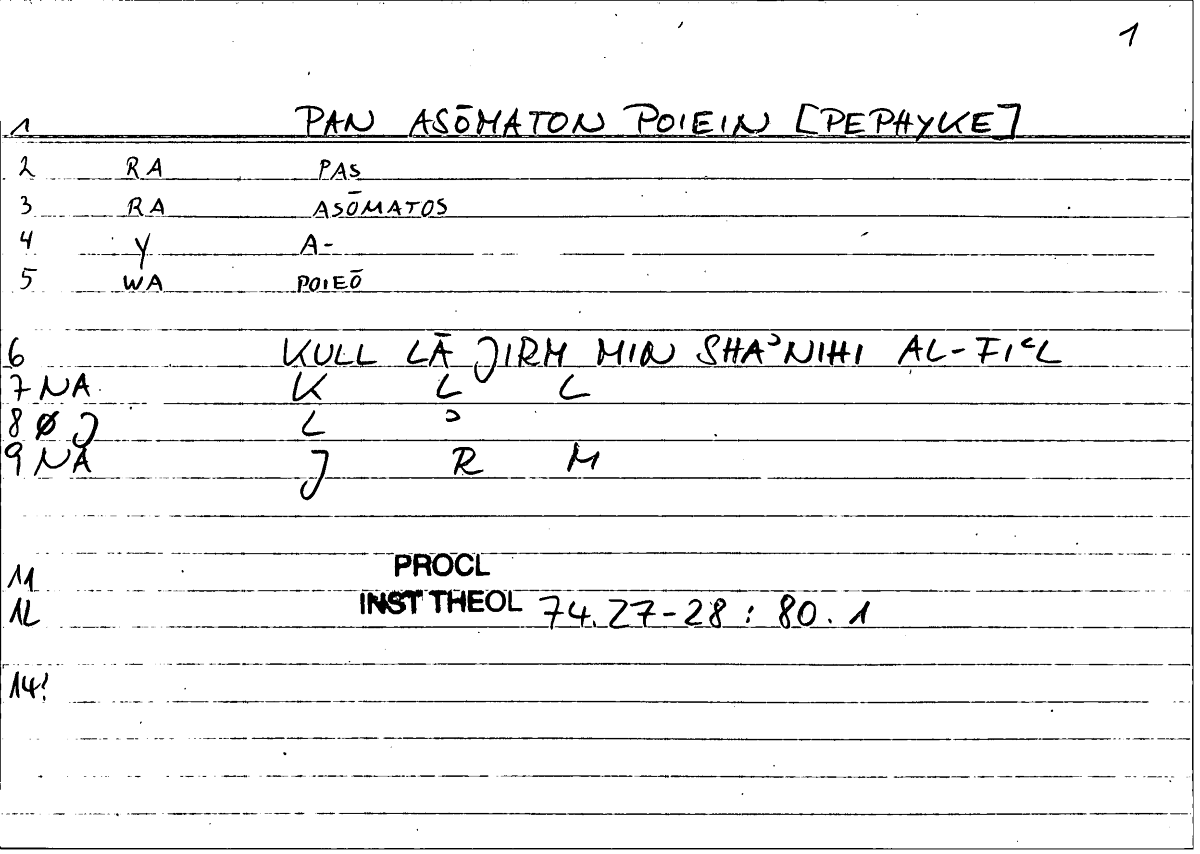 1
1 PAN ASŌMATON POIEIN [PEPHYKE]
2 RA PAS
3 RA ASŌMATOS
4 Y A-
5 WA POIEŌ
6 KULL LĀ JIRM MIN SHAʾNIHI AL-FIʿL
7 NA K L L
8 Ø J L ʾ
9 NA J R M
11 PROCL
12 INST THEOL 74.27-28 : 80.1
14!